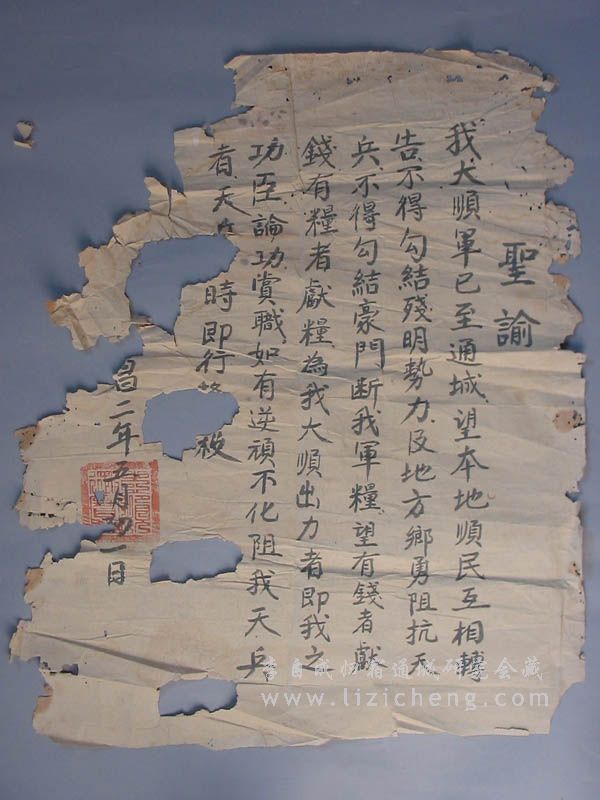 聖諭
我大順軍已至通城望本地順民互相轉
告不得勾結殘明勢力及地方鄉勇阻抗天
兵不得勾結豪門断我軍糧望有錢者獻
錢有糧者獻糧為我大順出力者即我之
功臣論功賞職如有逆頑不化阻我天兵
者天 時即行 殺
昌二年五月初一日
李自成归宿通城研究会藏
www.lizicheng.com